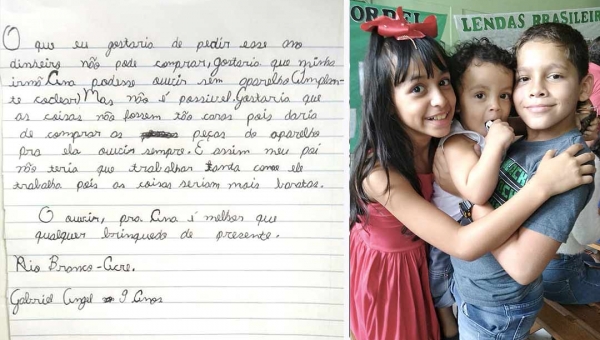 O que eu gostaria de pedir esse ano
dinheiro não pode comprar, gostaria que minha
irmã Ana podesse ouvir sem aparelho (implan-
te coclear) Mas não é possivel. Gostaria que
as coisas não fossem tão caras pois daria
de comprar as peças do aparelho
pra ela ouvir sempre. E assim meu pai
não teria que trabalhar tanto como ele
trabalha pois as coisas seriam mais baratas.
O ouvir, pra Ana é melhor que
qualquer brinquedo de presente.
Rio Branco-Acre.
Gabriel Angel 9 Anos
CORDEL
LENDAS BRASILEIR